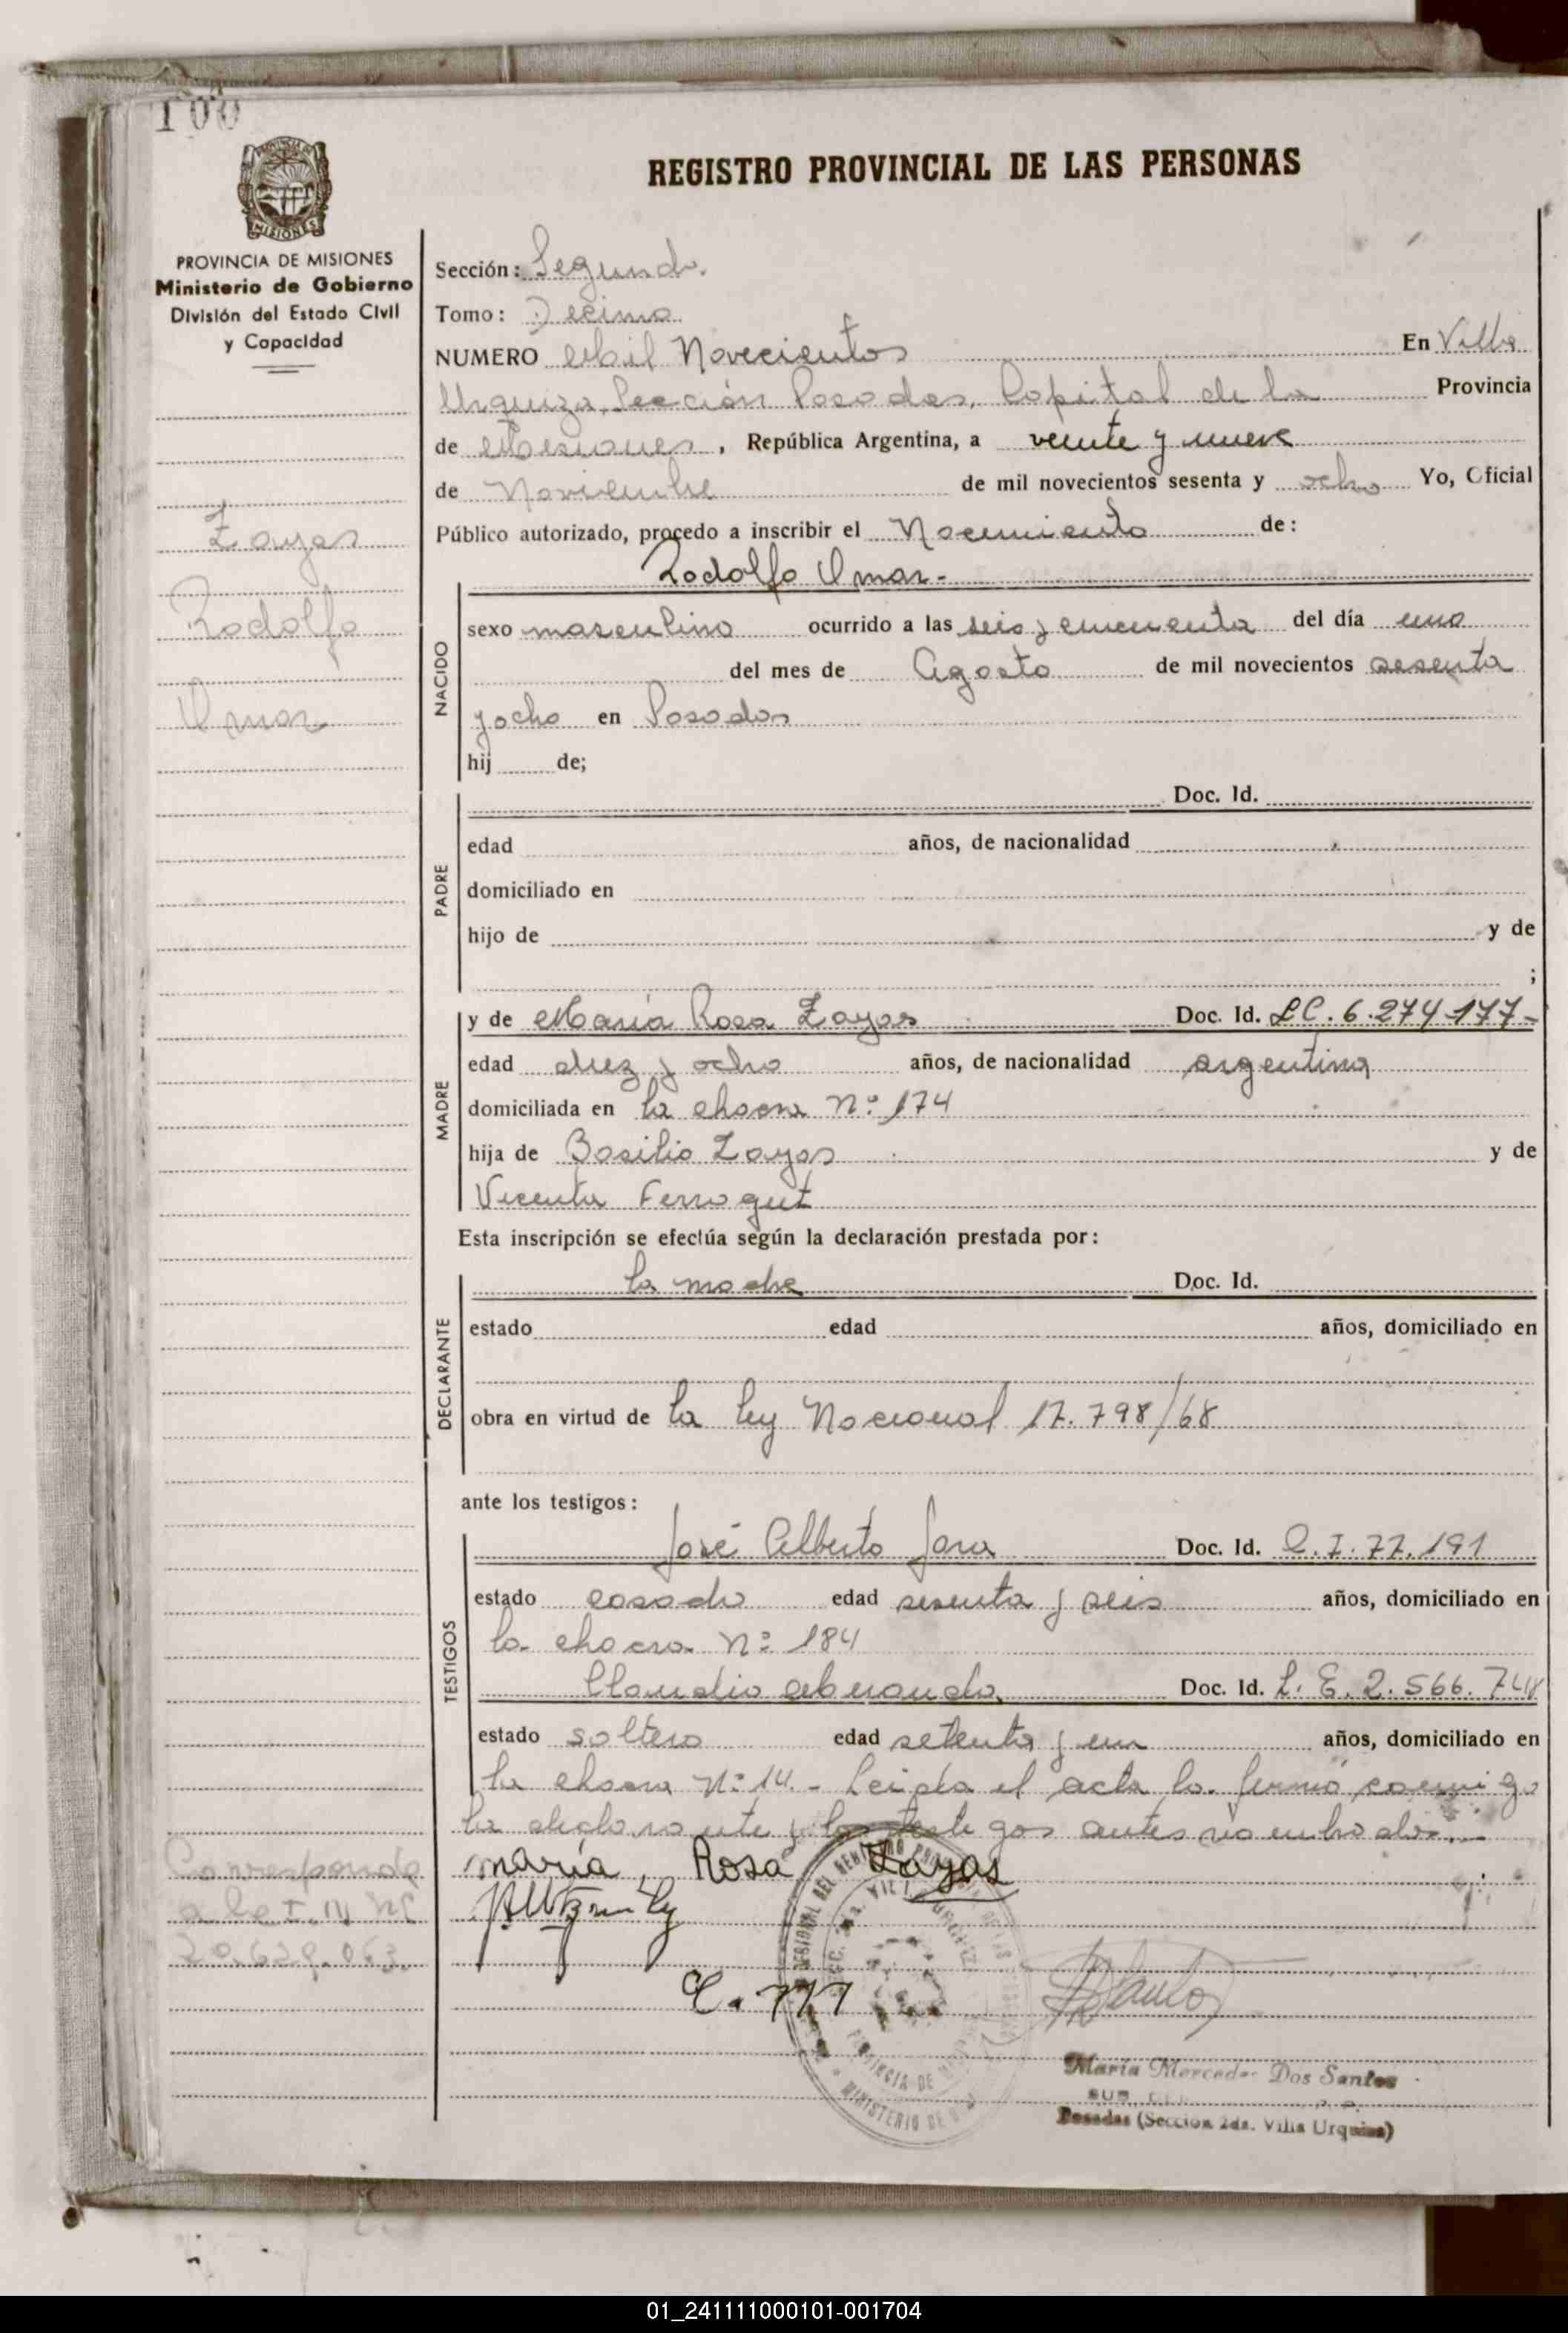 100
REGISTRO PROVINCIAL DE LAS PERSONAS
MISIONES
PROVINCIA DE MISIONES
Ministerio de Gobierno
División del Estado Civil
y Capacidad
Zayas
Rodolfo
Omar
Corresponde
Sección: Segunda.
Tomo: Décimo
NUMERO Mil Novecientos En Villa
Urquiza, Sección Posadas, Capital de la Provincia
de Misiones, República Argentina, a veinte y nueve
de Noviembre de mil novecientos sesenta y ocho Yo, Oficial
Público autorizado, procedo a inscribir el Nacimiento de:
Rodolfo Omar.-
NACIDO
sexo masculino ocurrido a las seis y cincuenta del día uno
del mes de Agosto de mil novecientos sesenta
y ocho en Posadas
hij de;
PADRE
Doc. Id.
edad años, de nacionalidad
domiciliado en
hijo de y de
;
MADRE
y de María Rosa Zayas Doc. Id. LC. 6.274.177-
edad diez y ocho años, de nacionalidad argentina
domiciliada en la chacra Nº 174
hija de Basilio Zayas y de
Vicenta Ferragut
Esta inscripción se efectúa según la declaración prestada por:
DECLARANTE
la madre Doc. Id.
estado edad años, domiciliado en
obra en virtud de la ley Nacional 17.798/68
ante los testigos:
TESTIGOS
José Alberto Jara Doc. Id. C.I. 77.191
estado casado edad sesenta y seis años, domiciliado en
la chacra Nº 184
Claudio Miranda Doc. Id. L.E. 2.566.748
estado soltero edad setenta y un años, domiciliado en
la chacra Nº 14.- Leída el acta la firmó conmigo
la declarante y los testigos antes nombrados.-
María, Rosa Zayas
María Mercedes Dos Santos
Posadas (Sección 2da. Villa Urquiza)
01_241111000101-001704